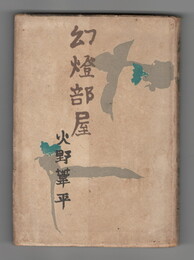 幻燈部屋
火野葦平